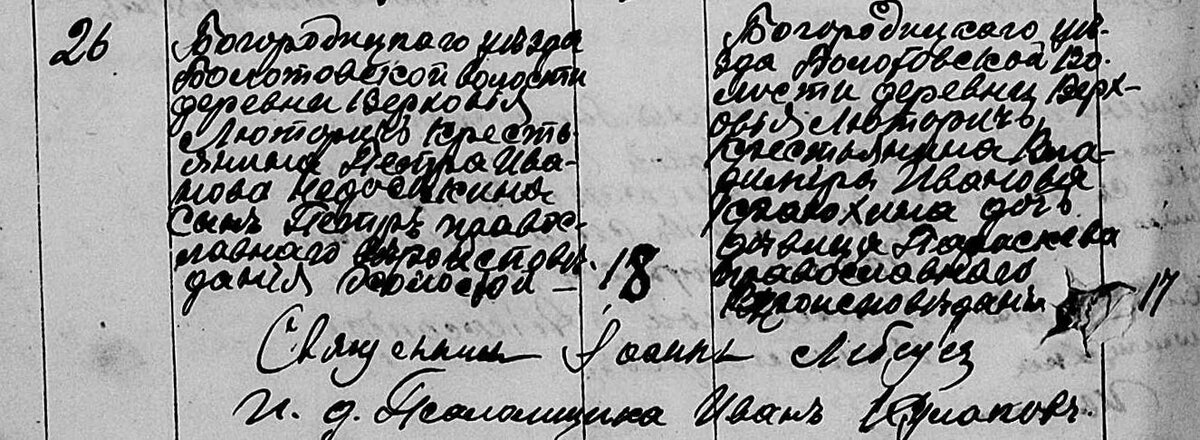 26
Богородицкаго уѣзда
Болотовской волости
деревни Верховья
Люторичъ кресть-
янина Петра Ива-
нова Недосѣкина
сынъ Петръ правос-
лавнаго вѣроисповѣ-
данія холостой –
18
Богородицкаго уѣ-
зда Болотовской во-
лости деревни Верх-
овья Люторичъ,
крестьянина Вла-
димира Иванова
дочь
дѣвица Параскева
православнаго
вѣроисповѣданія
17
Священникъ Іоаннъ
и. д. Псаломщика Иванъ